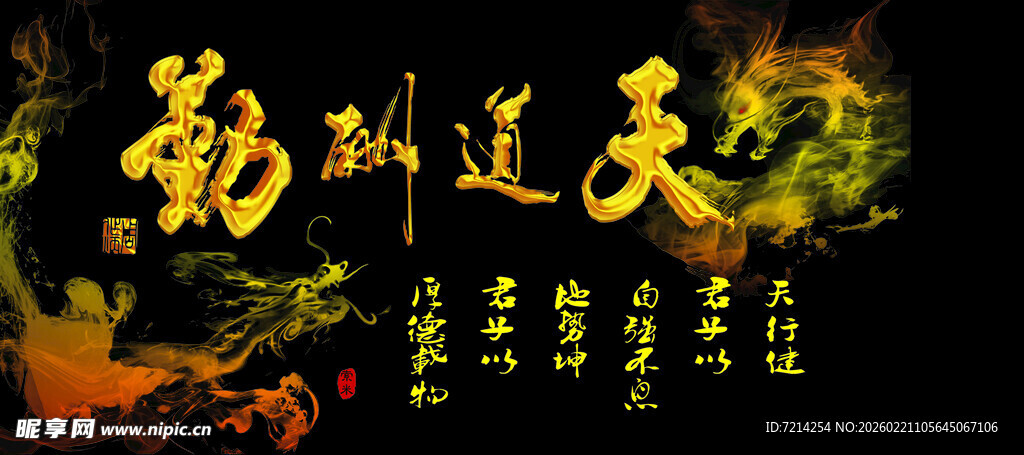 天道酬勤
天行健
君子以
自强不息
地势坤
君子以
厚德載物
素米
昵享网 www.nipic.cn
ID:7214254 NO:20260221105645067106